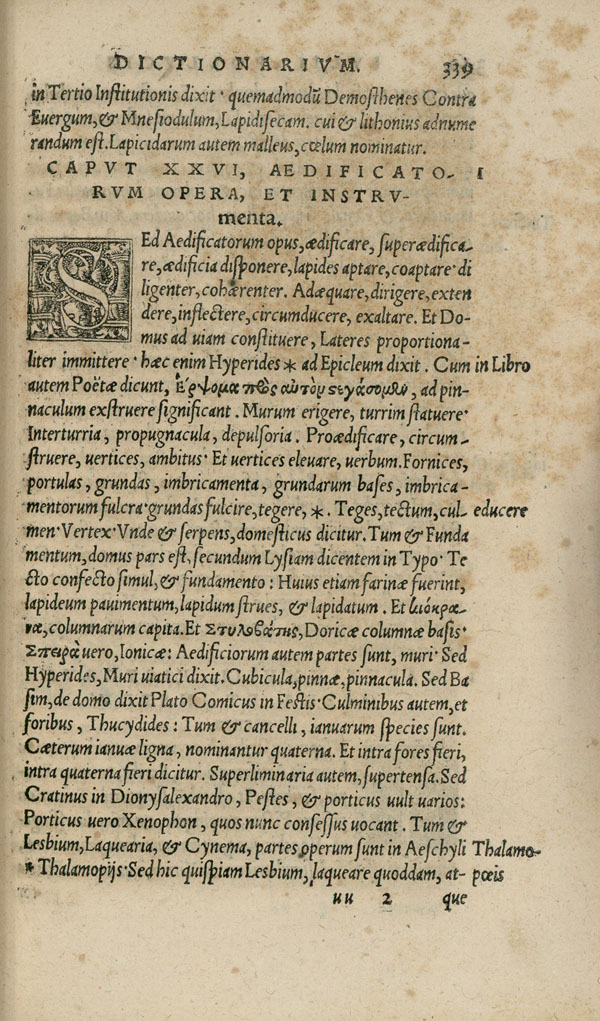 DICTIONARIVM. 339
in Tertio Institutionis dixit · quemadmodũ Demosthenes Contra
Euergum, & Mnesiodulum, Lapidisecam. cui & lithonius adnume
randum est. Lapicidarum autem malleus, cœlum nominatur.
CAPVT XXVI, AEDIFICATO- I
RVM OPERA, ET INSTRV-
menta.
SEd Aedificatorum opus, ædificare, superædifica-
re, ædificia disponere, lapides aptare, coaptare · di
ligenter, cohærenter. Adæquare, dirigere, exten
dere, inflectere, circumducere, exaltare. Et Do-
mus ad uiam constituere, Lateres proportiona-
liter immittere · hæc enim Hyperides * ad Epicleum dixit. Cum in Libro
autem Poëtæ dicunt, ad pin-
naculum exstruere significant. Murum erigere, turrim statuere ·
Interturria, propugnacula, depulsoria. Proædificare, circum-
struere, uertices, ambitus · Et uertices eleuare, uerbum. Fornices,
portulas, grundas, imbricamenta, grundarum bases, imbrica-
mentorum fulcra · grundas fulcire, tegere, *. Teges, tectum, cul- educere
men · Vertex · Vnde & serpens, domesticus dicitur. Tum & Funda
mentum, domus pars est, secundum Lysiam dicentem in Typo · Te
cto confecto simul, & fundamento : Huius etiam farinæ fuerint,
lapideum pauimentum, lapidum strues, & lapidatum. Et κιόκρα-
να, columnarum capita. Et Στυλοβάτης, Doricæ columnæ basis ·
Σπειρὰ uero, Ionicæ: Aedificiorum autem partes sunt, muri · Sed
Hyperides, Muri uiatici dixit. Cubicula, pinnæ, pinnacula. Sed Ba
sim, de domo dixit Plato Comicus in Festis · Culminibus autem, et
foribus, Thucydides : Tum & cancelli, ianuarum species sunt.
Cæterum ianuæ ligna, nominantur quaterna. Et intra fores fieri,
intra quaterna fieri dicitur. Superliminaria autem, supertensa. Sed
Cratinus in Dionysalexandro, Pestes, & porticus uult uarios:
Porticus uero Xenophon, quos nunc consessus uocant. Tum &
Lesbium, Laquearia, & Cynema, partes operum sunt in Aeschyli Thalamo-
* Thalamopijs · Sed hic quispiam Lesbium, laqueare quoddam, at- pœis
uu 2 que